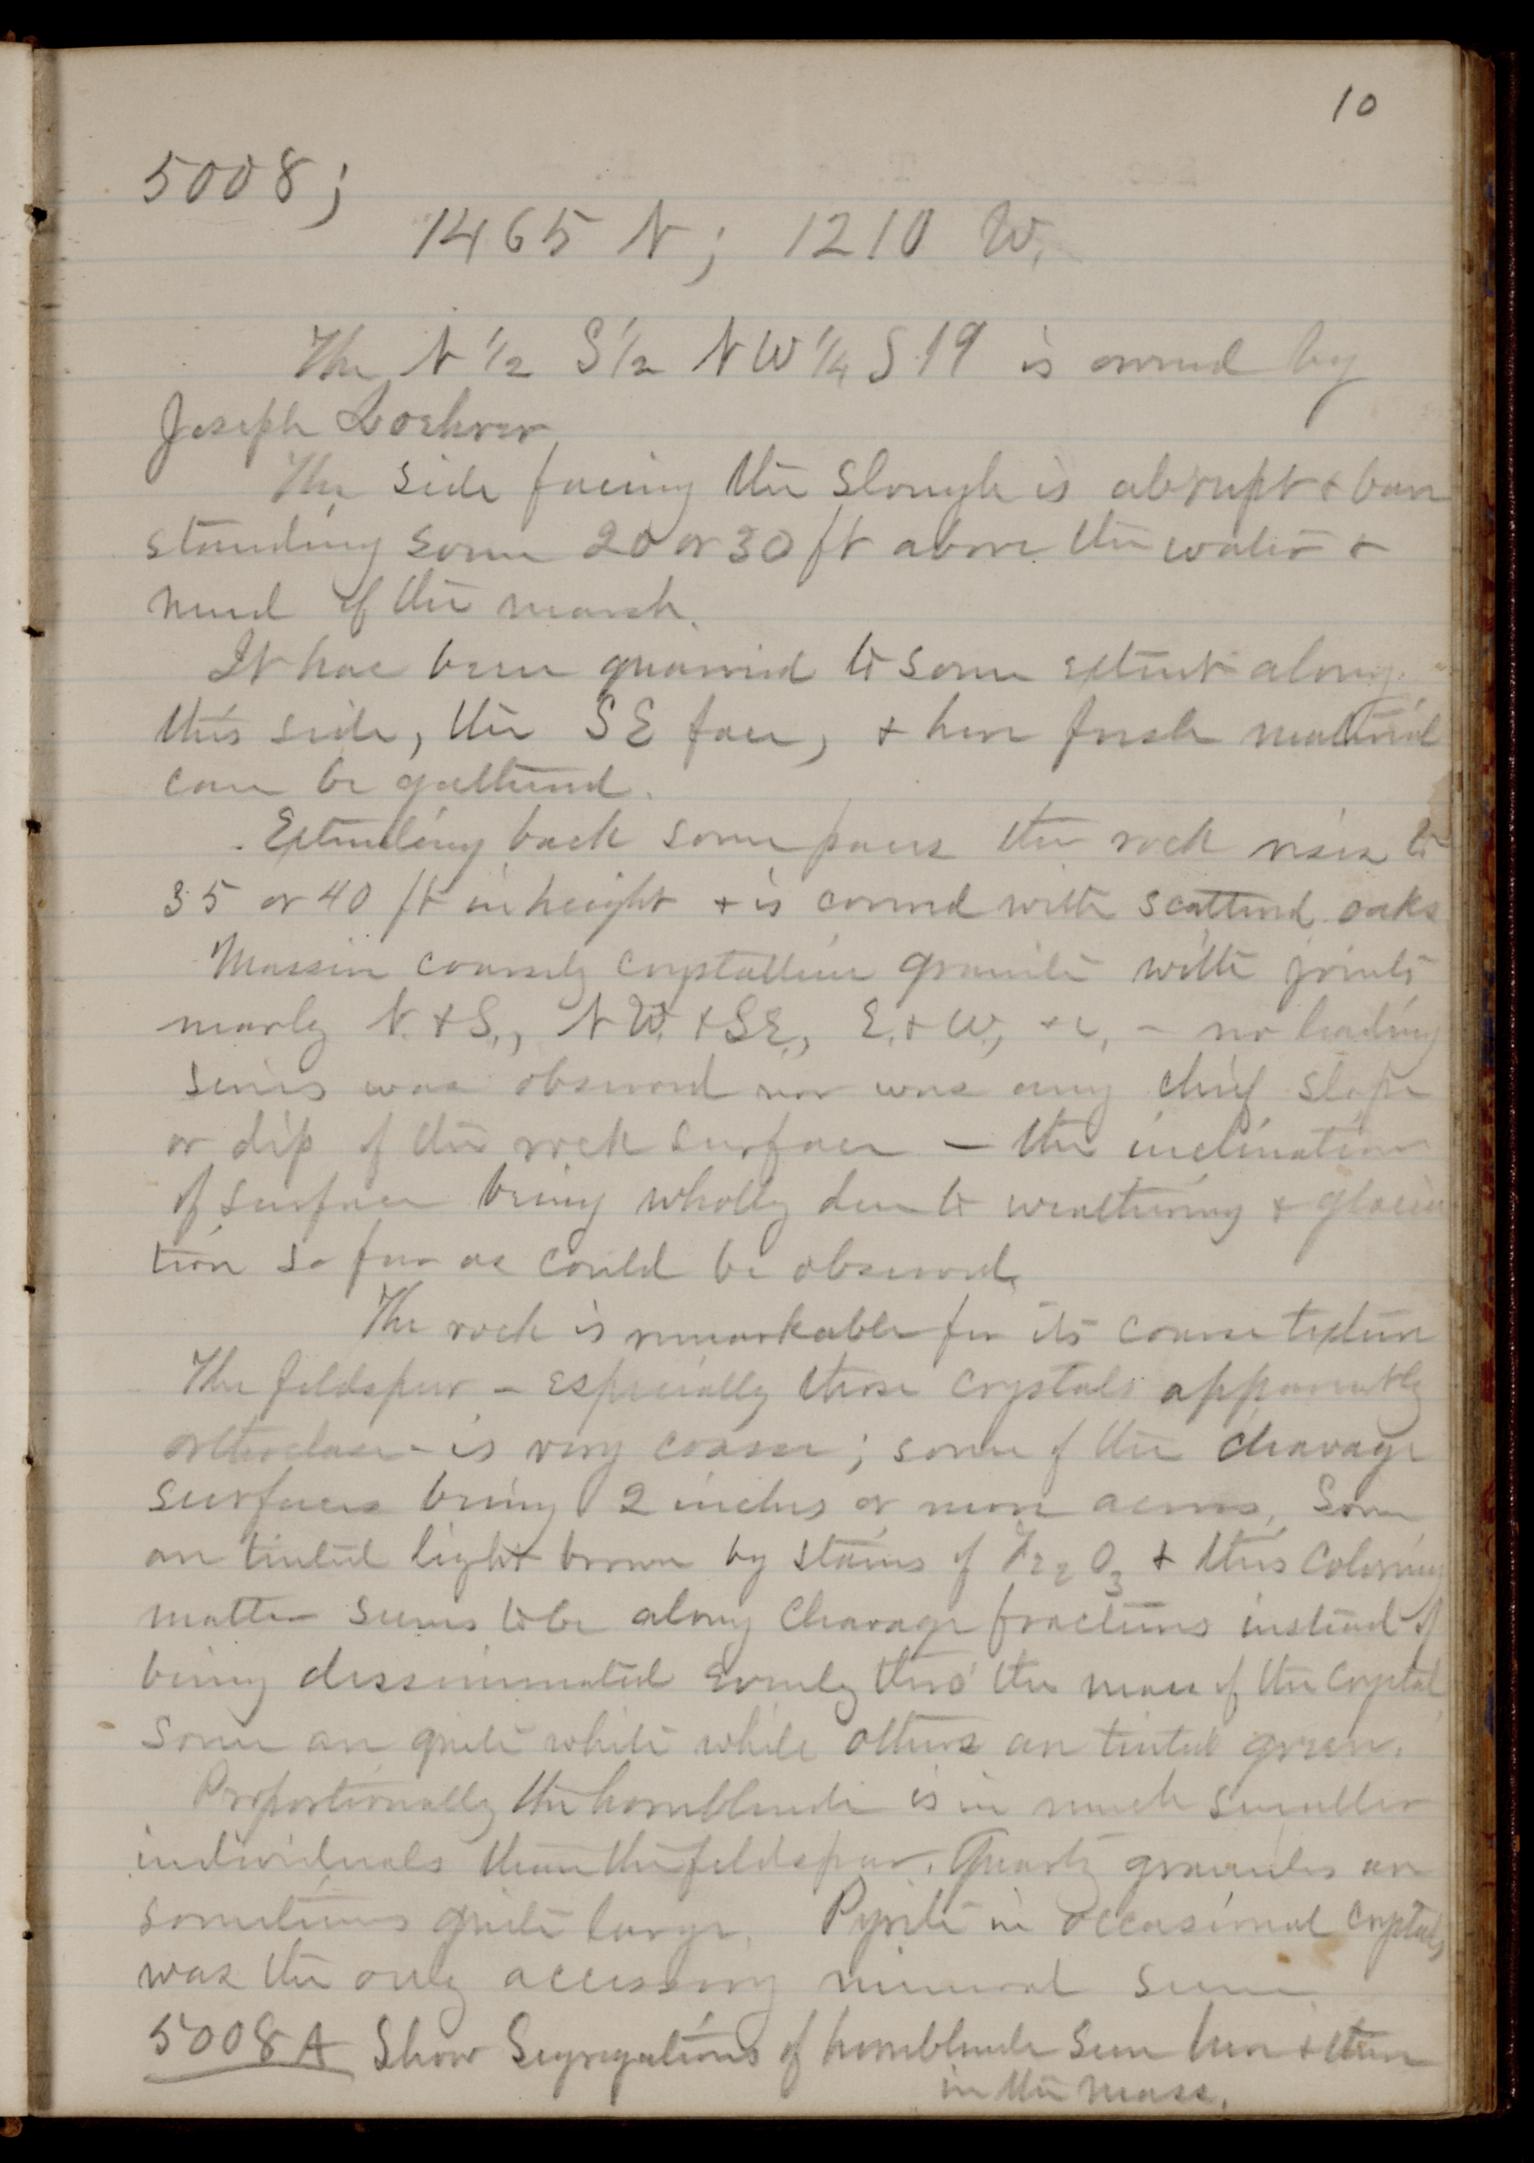 10
5008;
1465 N; 1210 W.
The N 1/2 S 1/2 NW 1/4 S 19 is owned by
Joseph
The side facing the slough is abrupt & bare
standing some 20 or 30 ft above the water &
mud of the marsh.
It has been quarried to some extent along
this side, the SE face, & here fresh material
can be gathered.
Extending back some paces the rock rises to
35 or 40 ft in height & is covered with scattered oaks
Massive coarsely crystalline granite with joints
nearly N. & S., NW. & SE., E. & W., &c, - no leading
series was observed nor was any chief slope
or dip of the rock surface - the inclination
of surface being wholly due to weathering & glacia
tion so far as could be observed.
The rock is remarkable for its coarse texture
The feldspar - especially those crystals apparently
orthoclase - is very coarse; some of the cleavage
surfaces being 2 inches or more across. Some
are tinted light brown by stains of Fe2O3 & this coloring
matter seems to be along cleavage fractures instead of
being disseminated evenly thro' the mass of the crystal
Some are quite white while others are tinted green.
Proportionally the hornblende is in much smaller
individuals than the feldspar. Quartz granules are
sometimes quite large. Pyrite in occasional crystals
was the only accessory mineral seen
5008A Show Segregations of hornblende seen here & there
in the mass.